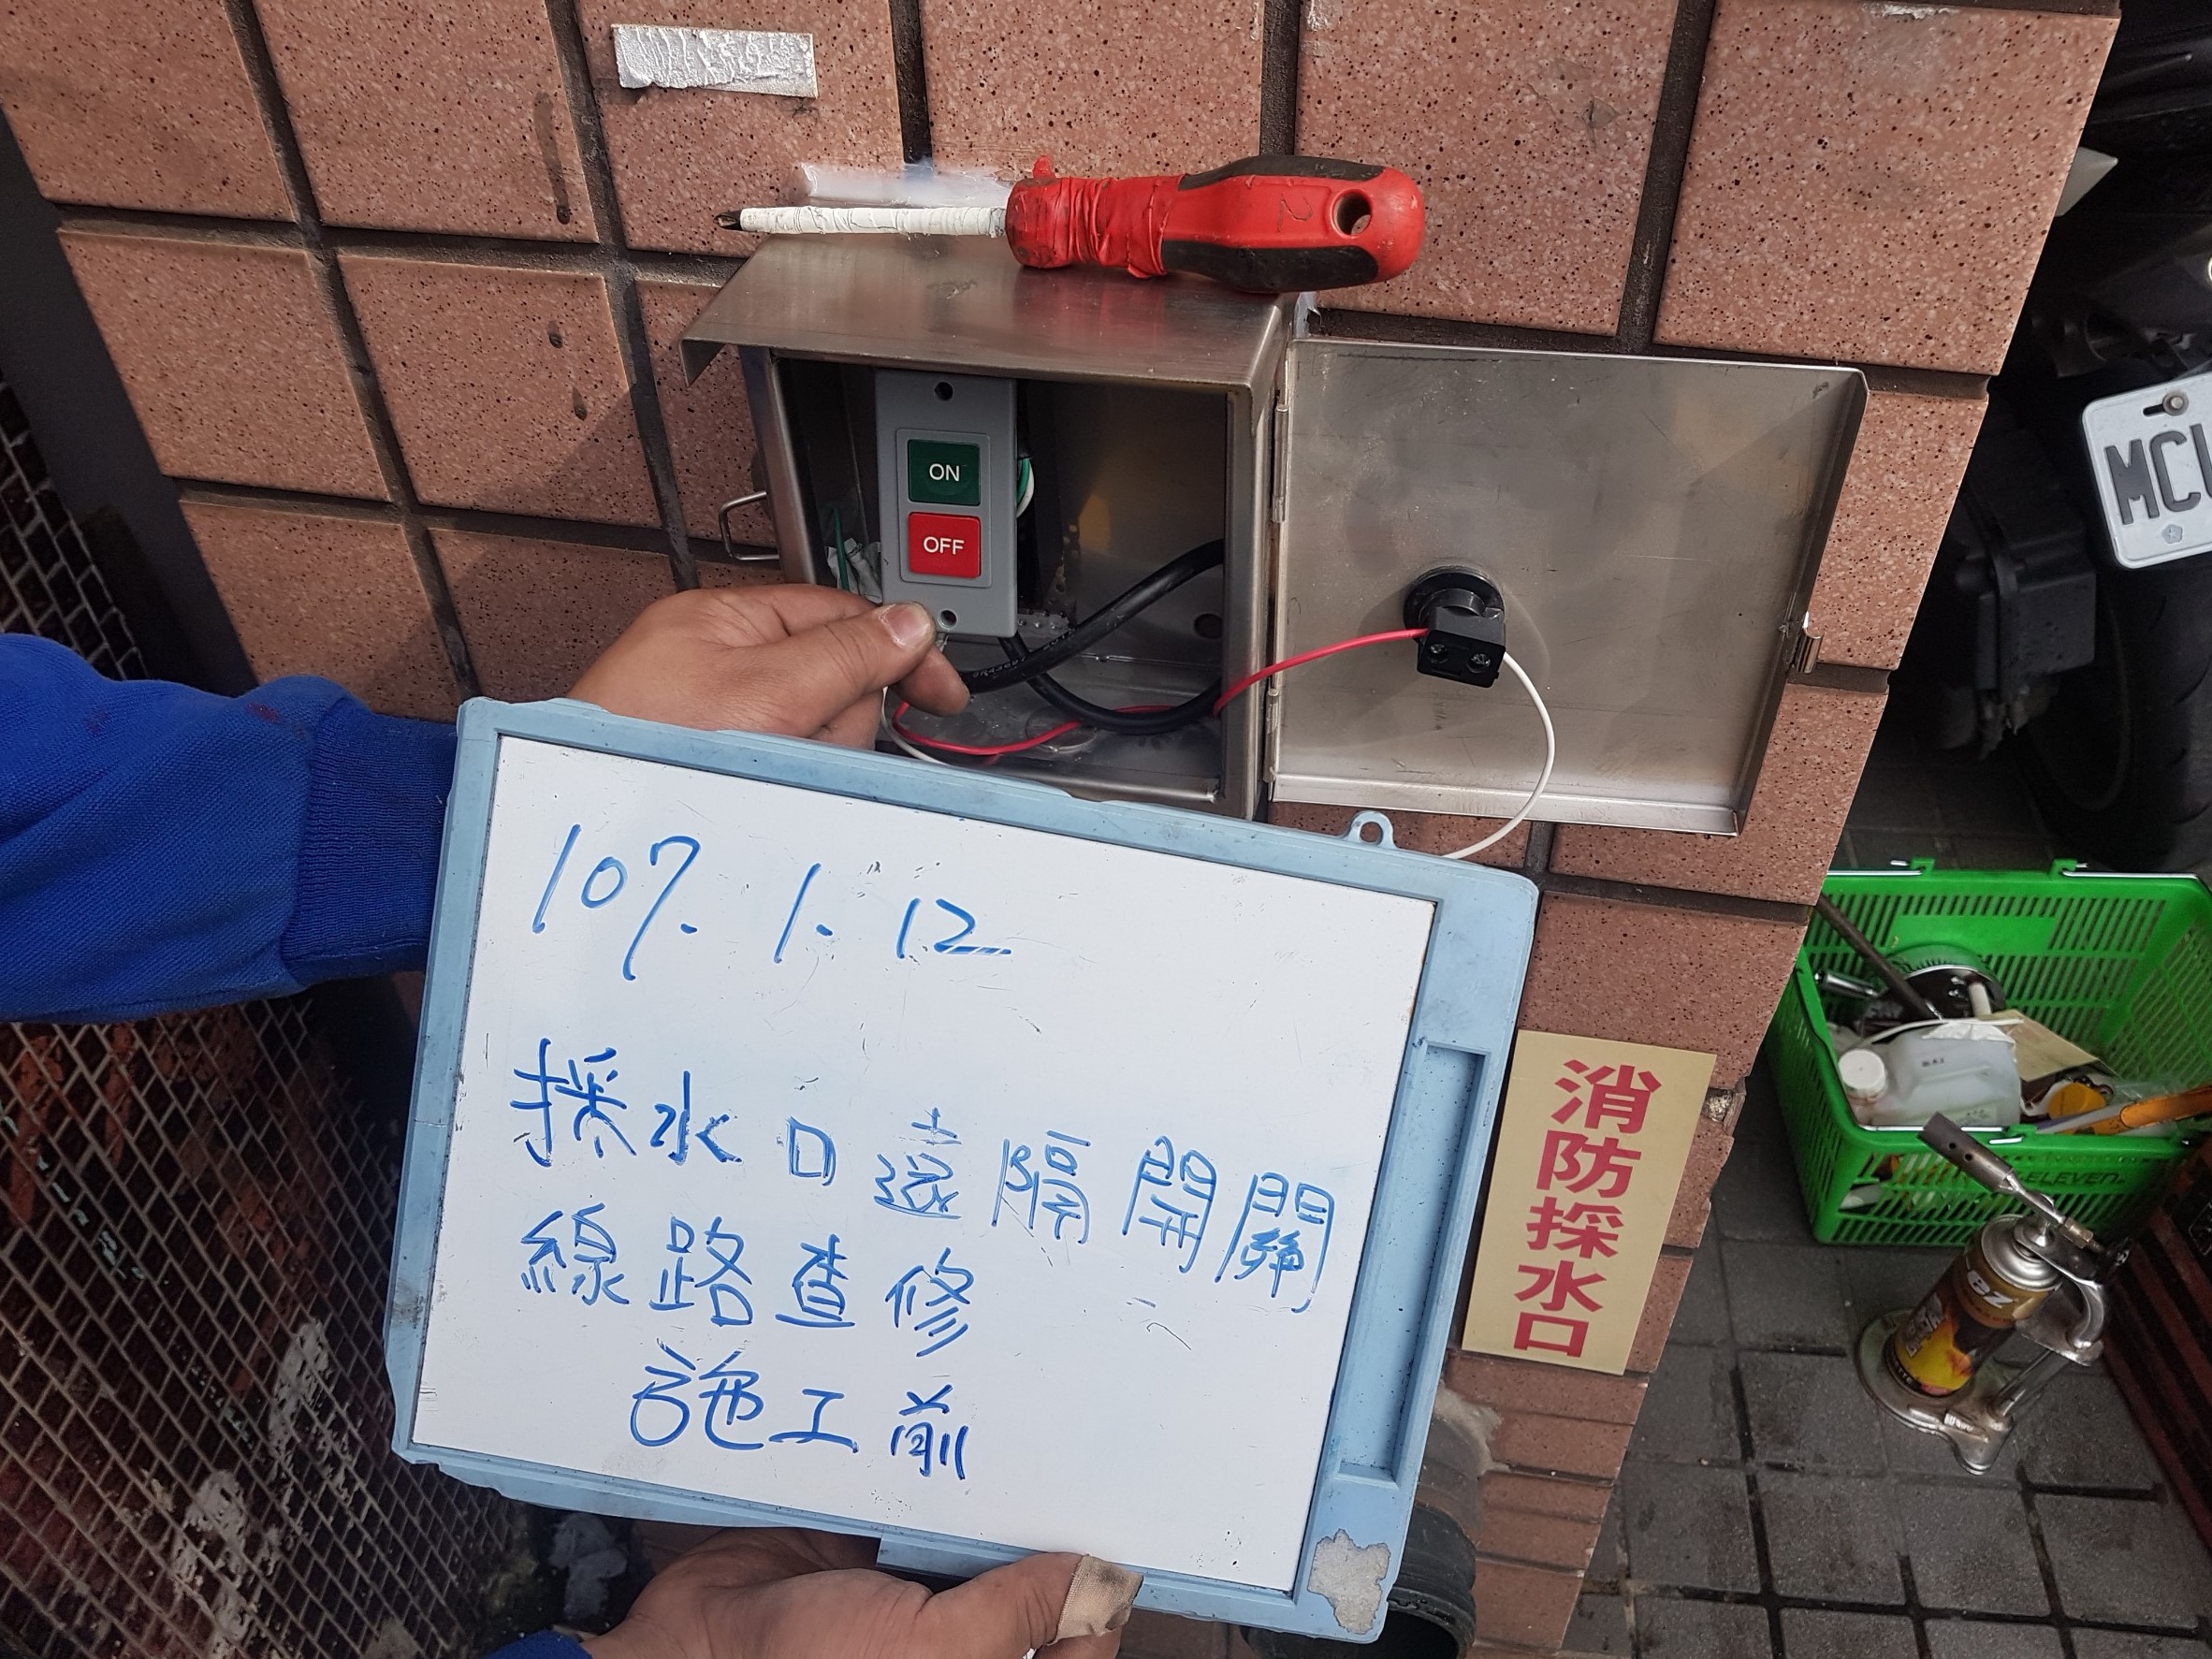 2
ON
OFF
MC
107. 1. 12
採水口遠隔開關
線路查修
施工前
消防採水口
ELEVEN